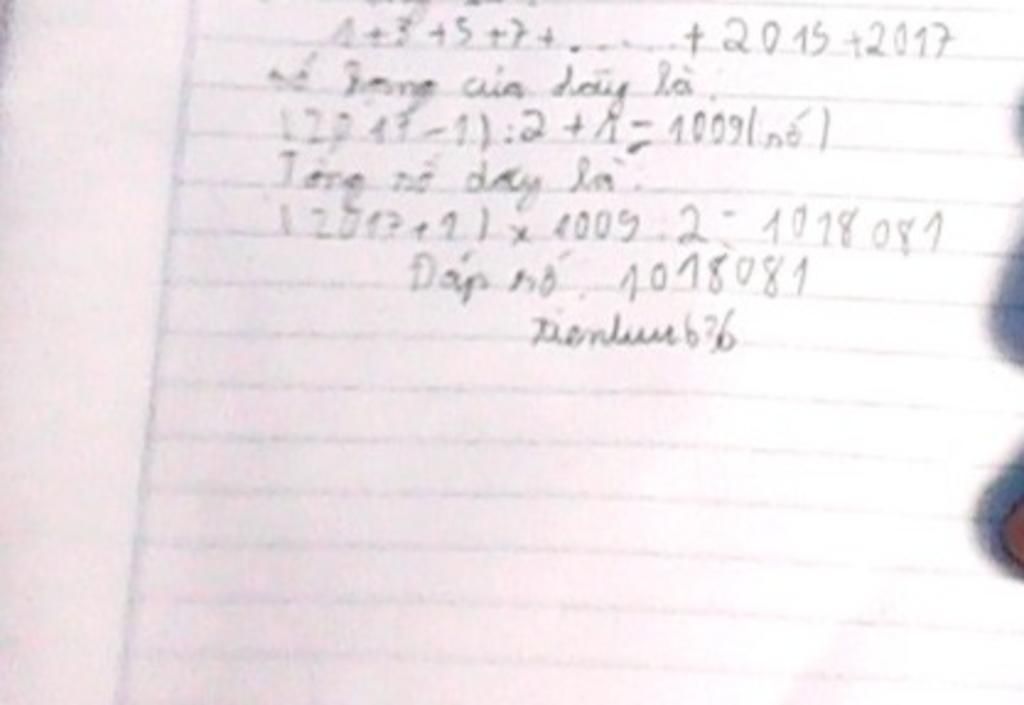 1+3+5+7+.......+2015+2017
số hạng của dãy là:
(2017-1):2+1=1009(số)
Tổng số dãy là:
(2017+1)x1009:2=1018081
Đáp số: 1018081